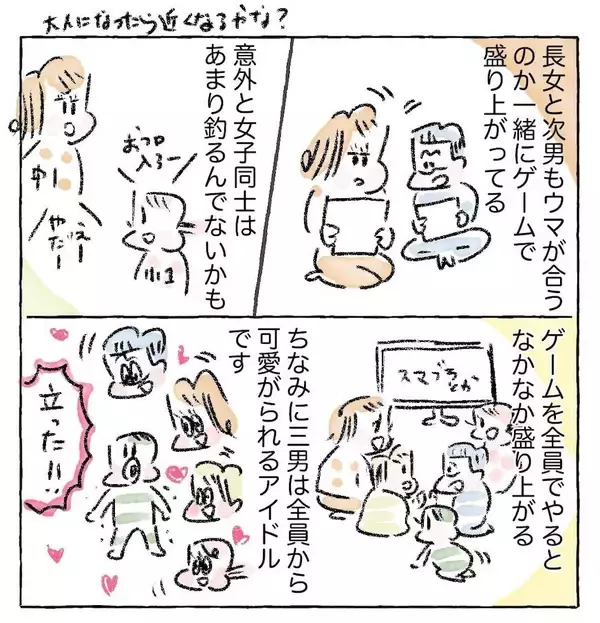 大人になったら近くなるかな？
長女と次男もウマが合う
のか一緒にゲームで
盛り上がってる
意外と女子同士は
あまり釣るんでないかも
おフロ
入ろー
中1
えー
やだー
小1
ゲームを全員でやると
なかなか盛り上がる
スマブラ
とか
ちなみに三男は全員から
可愛がられるアイドル
です
立った!!